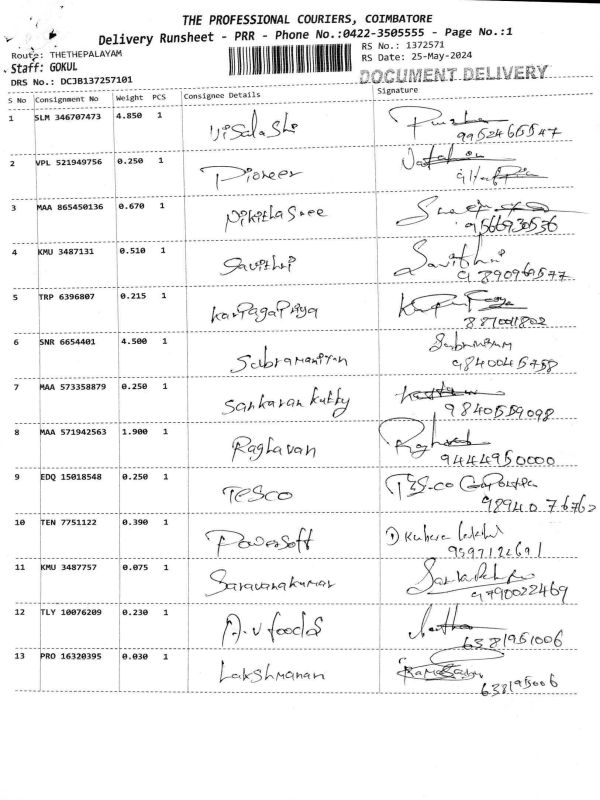 THE PROFESSIONAL COURIERS, COIMBATORE
Delivery Runsheet - PRR - Phone No.:0422-3505555 - Page No.:1
Route: THETHEPALAYAM
RS No.: 1372571
Staff: GOKUL
RS Date: 25-May-2024
DRS No.: DCJB137257101
DOCUMENT DELIVERY
S No Consignment No Weight PCS Consignee Details Signature
1 SLM 346707473 4.850 1 Visalashi
9952465547
2 VPL 521949756 0.250 1 Pioneer
3 MAA 865450136 0.670 1 Nikitha Sree
9566930536
4 KMU 3487131 0.510 1 Savithri Savithri
9890969577
5 TRP 6396807 0.215 1 KarPagaPriya
6 SNR 6654401 4.500 1 Subramaniyan
9840045758
7 MAA 573358879 0.250 1 Sankaran kutty
9840559098
8 MAA 571942563 1.900 1 Raghavan
9444950000
9 EDQ 15018548 0.250 1 TESCO
9894076762
10 TEN 7751122 0.390 1 Powersoft
11 KMU 3487757 0.075 1 Saravanakumar
9790022469
12 TLY 10076209 0.230 1 A.V foods
6381951006
13 PRO 16320395 0.030 1 Lakshmanan